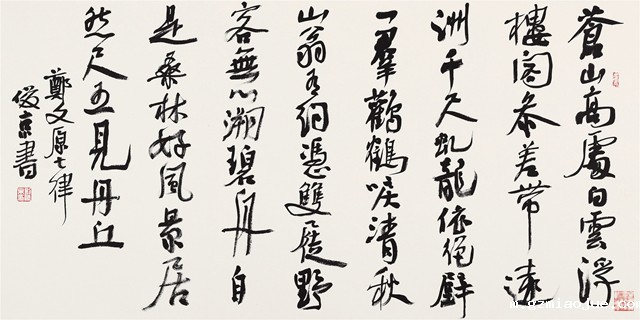 蒼山高處白雲浮
樓閣參差帶遠
洲千尺虬龍依絕壁
一羣鸛鶴唳清秋
山翁有約憑雙屐野
客無心溯碧舟自
是桑林好風景居
然尺五見丹丘
鄭文原七律
俊京書
m.gzmiaogu.com